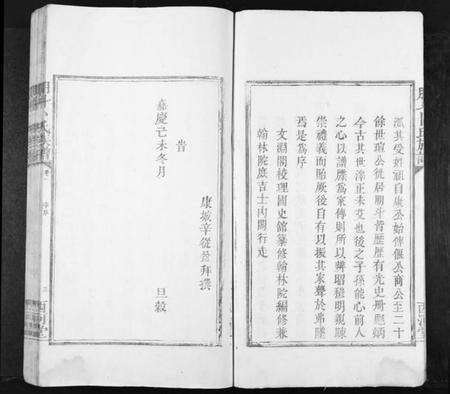 派其受姓祖自康公始傳偃公商公至二十
餘世瑄公徙居朗斗嵴歷歷有光史冊彪炳
今古其世澤正未艾也後之子孫能心前人
之心以譜牒爲家傳則所以辨昭穆明親疎
崇禮義而貽厥後自有以振其家聲於弗墜
焉是爲序
文淵閣校理國史館纂修翰林院編修兼
翰林院庶吉士內閣行走
康城辛從益拜撰
旹
嘉慶己未冬月 旦穀